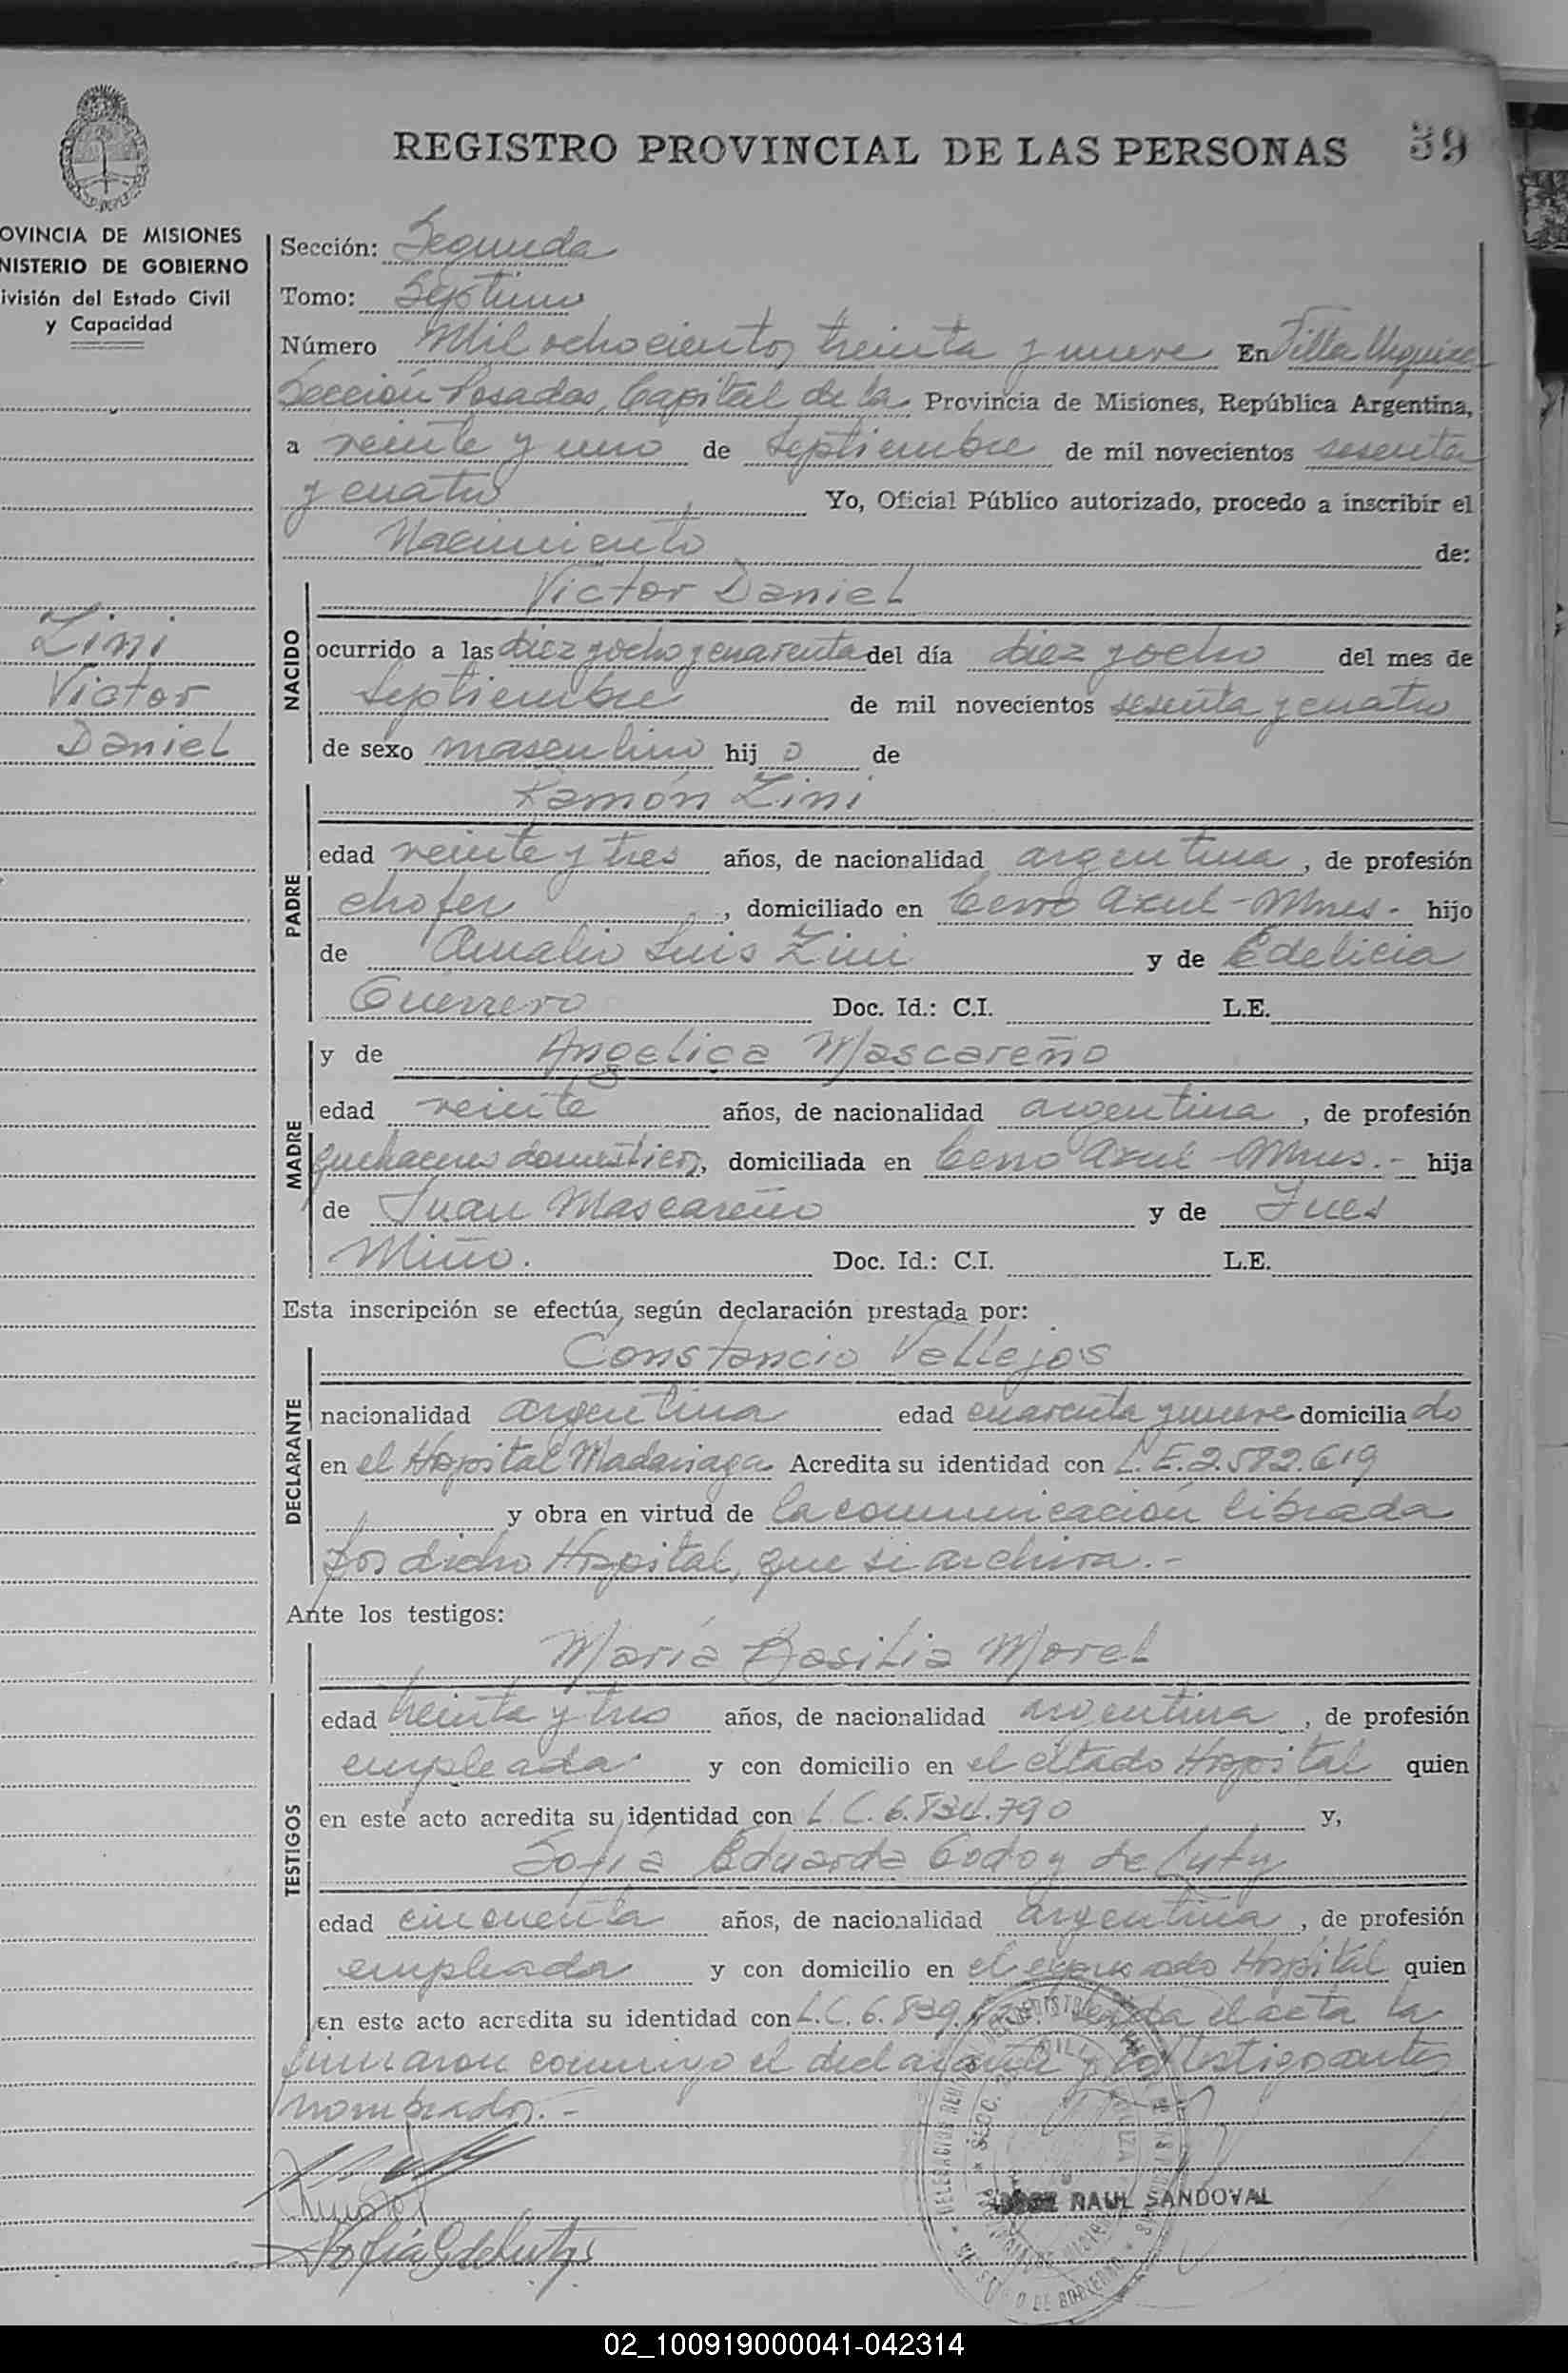 REGISTRO PROVINCIAL DE LAS PERSONAS 39
OVINCIA DE MISIONES
NISTERIO DE GOBIERNO
ivisión del Estado Civil
y Capacidad
Sección: Segunda
Tomo: Septimo
Número Mil ochocientos treinta y nueve En Villa Urquiza
Sección Posadas, Capital de la Provincia de Misiones, República Argentina,
a veinte y uno de Septiembre de mil novecientos sesenta
y cuatro Yo, Oficial Público autorizado, procedo a inscribir el
Nacimiento de:
Zini
Victor
Daniel
NACIDO
Victor Daniel
ocurrido a las diez y ocho y cuarenta del día diez y ocho del mes de
Septiembre de mil novecientos sesenta y cuatro
de sexo masculino hij o de
PADRE
Ramón Zini
edad veinte y tres años, de nacionalidad argentina, de profesión
chofer, domiciliado en Cerro Azul - Mnes - hijo
de Amalio Luis Zini y de Edelicia
Guerrero Doc. Id.: C.I. L.E.
MADRE
y de Angelica Mascareño
edad veinte años, de nacionalidad argentina, de profesión
quehaceres domésticos, domiciliada en Cerro Azul - Mnes. - hija
de Juan Mascareño y de Ines
Miño. Doc. Id.: C.I. L.E.
Esta inscripción se efectúa, según declaración prestada por:
DECLARANTE
Constancio Vallejos
nacionalidad argentina edad cuarenta y nueve domicilia do
en el Hospital Madariaga Acredita su identidad con L.E. 2.582.619
y obra en virtud de la comunicación librada
por dicho Hospital, que se archiva. -
Ante los testigos:
TESTIGOS
María Basilia Morel
edad treinta y tres años, de nacionalidad argentina, de profesión
empleada y con domicilio en el citado Hospital quien
en este acto acredita su identidad con L.C. 6.834.790 y,
Sofia Eduarda Godoy de Luty
edad cincuenta años, de nacionalidad argentina, de profesión
empleada y con domicilio en el expresado Hospital quien
en este acto acredita su identidad con L.C. 6.839. Leida el acta la
firmaron conmigo el declarante y los testigos antes
nombrados. -
RAUL SANDOVAL
02_100919000041-042314